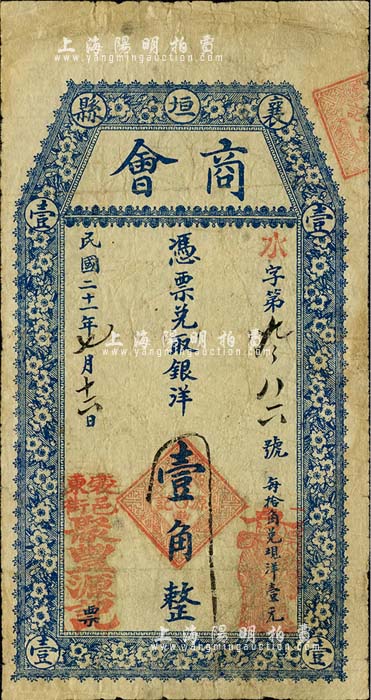 上海陽明拍賣
www.yangmingauction.com
襄垣縣
商會
壹 壹
水字第九〇八六號
每拾角兌現洋壹元
憑票兌取銀洋
壹角整
民國二十一年七月十六日
襄邑
東街
聚豐源記
票
上海陽明拍賣
www.yangmingauction.com
壹 壹
上海陽明拍賣
www.yangmingauction.com